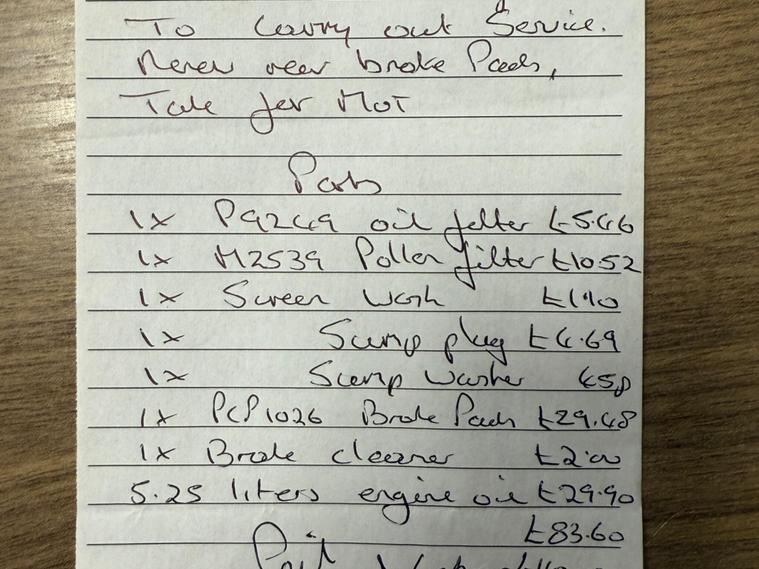 To Carry out Service.
Renew rear brake Pads,
Take for MOT
Parts
1x P9249 oil filter £5.46
1x M2539 Pollen filter £10.52
1x Screen wash £1.10
1x Sump plug £4.69
1x Sump washer 45p
1x PCP1026 Brake Pads £29.48
1x Brake cleaner £2.00
5.25 liters engine oil £29.90
£83.60